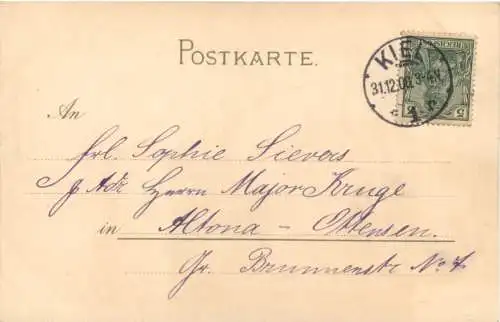 POSTKARTE.
KIEL
31.12.00. 3-4N.
1
5 5
An
Frl. Sophie Sievers
p Adr Herrn Major Kruge
in Altona - Ottensen.
Gr. Brunnenstr No 4